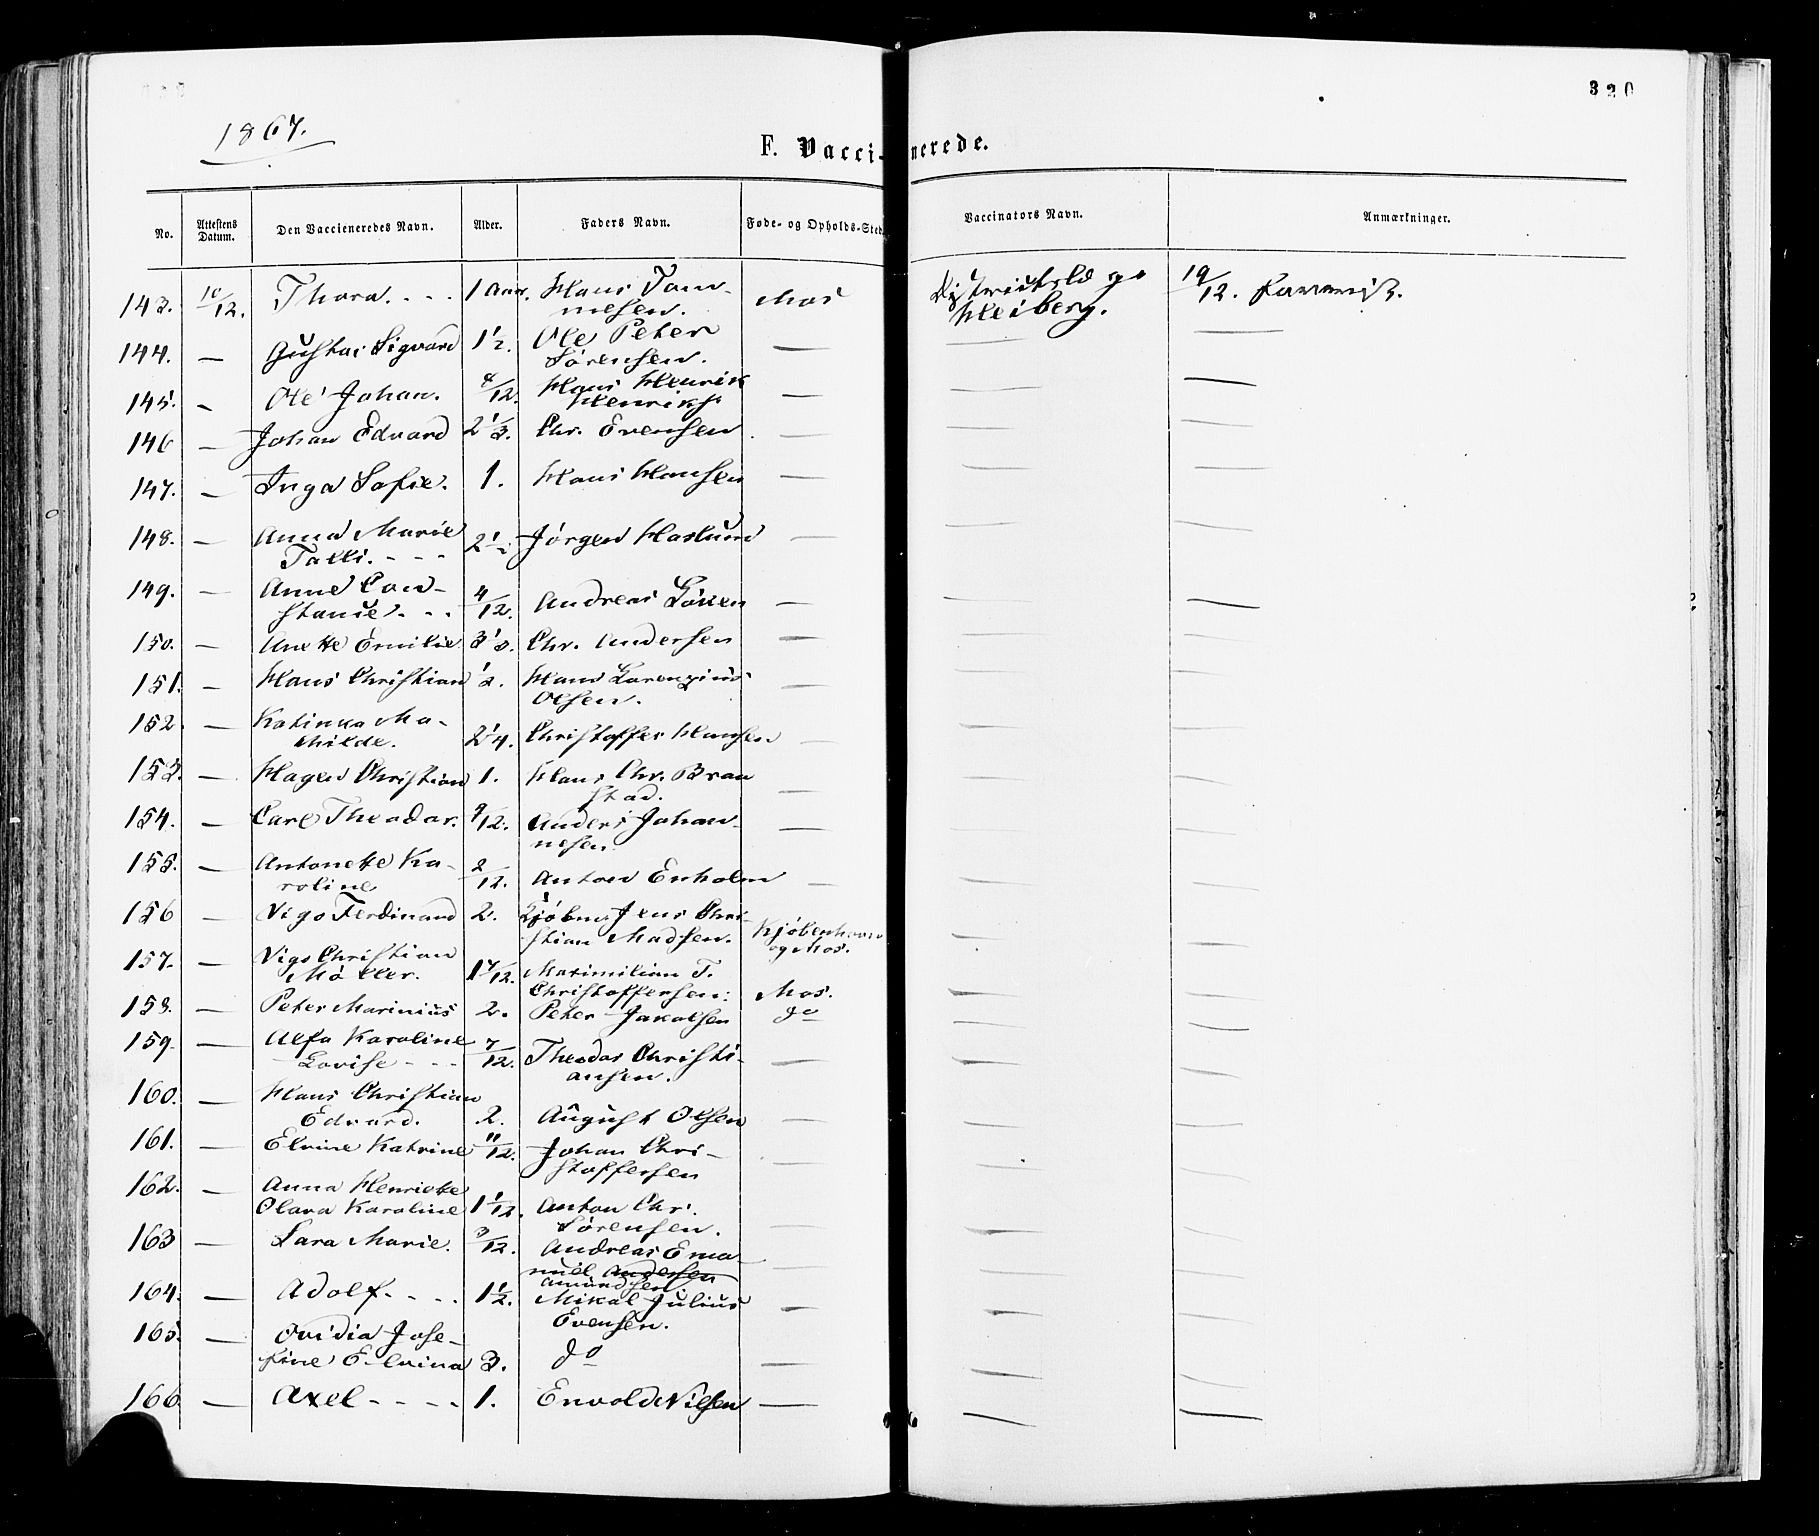 320
1867.
F. Vaccinerede.
No. Attestens Datum. Den Vaccieneredes Navn. Alder. Faders Navn. Føde- og Opholds-Sted Vaccinators Navn. Anmærkninger.
143. 10/12. Thora. - - - 1 Aar. Hans Tom- Mos 19/12.
mesen. Heiberg.
144. — Gustav Sigvard 1½. Ole Peter — — —
Sørensen.
145. — Ole Johan. 4/12. Hans Henrik — — —
Henriks.
146 — Johan Edvard 2⅓. Chr. Evensen — — —
147. — Inga Sofie. 1. Hans Hansen — — —
148. — Anna Marie 2½ Jørgen Haslum — — —
Talli. - - -
149. — Anne Con- 4/12. Andreas Løken — — —
stanse. - -
150. — Anette Emilie Chr. Andersen — — —
151. — Hans Christian ½. Hans Lorenzius — — —
Olsen.
152. — Katinka Ma- 2¼. Christoffer Hansen — — —
thilde.
153. — Hagen Christian 1. Hans Chr. Bran — — —
stad.
154. — Carl Theodor. 9/12. Anders Johan- — — —
nesen.
155. — Antonette Ka- 2/12. Anton Enholm — — —
roline
156 — Vigo Ferdinand 2. Jens Chri- Kjøbenhavn — —
stian Madsen. og Mos.
157. — Vigo Christian 1 7/12. Maximilian T. Mos. — —
Møller. Christoffersen.
158. — Peter Marinius 2. Peter Jakobsen do — —
159. — Alfa Karoline 7/12. Theodor Christi- — — —
Lovise - - - ansen.
160. — Hans Christian 2. August Olsen — — —
Edvard.
161. — Elvine Katrine 11/12. Johan Chri- — — —
stoffersen
162. — Anna Henriette
Olava Karoline 1 1/12. Anton Chr. — — —
Sørensen.
163 — Lara Marie. 3/12. Andreas Ema- — — —
nuel Andersen
Amundsen
164. — Adolf. - - - - 1½. Mikal Julius — — —
Evensen.
165. — Ovidia Jose-
fine Elvina 3. do — — —
166 — Axel - - - - 1. Envold Nilsen — — —